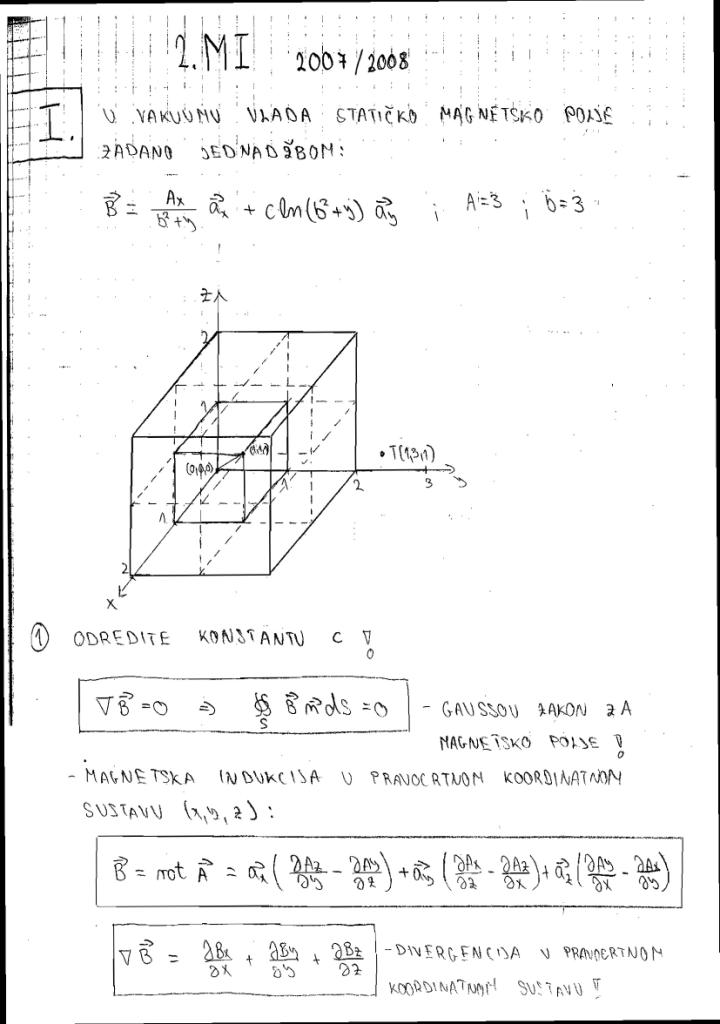 2. MI 2007/2008
I. U VAKUUMU VLADA STATIČKO MAGNETSKO POLJE
ZADANO JEDNADŽBOM:
B⃗ = Ax/(b²+y) a⃗x + C ln(b²+y) a⃗y ; A=3 ; b=3
z
2
1
(1,1,1)
(0,0,0)
T(1,3,1)
1 2 3 y
1
2
x
① ODREDITE KONSTANTU C !
∇B⃗ = 0 ⇒ ∯S B⃗ n⃗ dS = 0 - GAUSSOV ZAKON ZA
MAGNETSKO POLJE !
- MAGNETSKA INDUKCIJA U PRAVOCRTNOM KOORDINATNOM
SUSTAVU (x,y,z) :
B⃗ = rot A⃗ = a⃗x (∂Az/∂y - ∂Ay/∂z) + a⃗y (∂Ax/∂z - ∂Az/∂x) + a⃗z (∂Ay/∂x - ∂Ax/∂y)
∇B⃗ = ∂Bx/∂x + ∂By/∂y + ∂Bz/∂z - DIVERGENCIJA U PRAVOCRTNOM
KOORDINATNOM SUSTAVU !